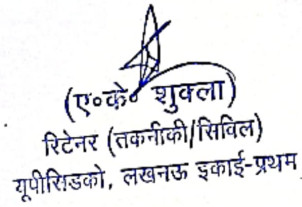 (ए०के० शुक्ला)
रिटेनर (तकनीकी/सिविल)
यूपीसिडको, लखनऊ इकाई-प्रथम